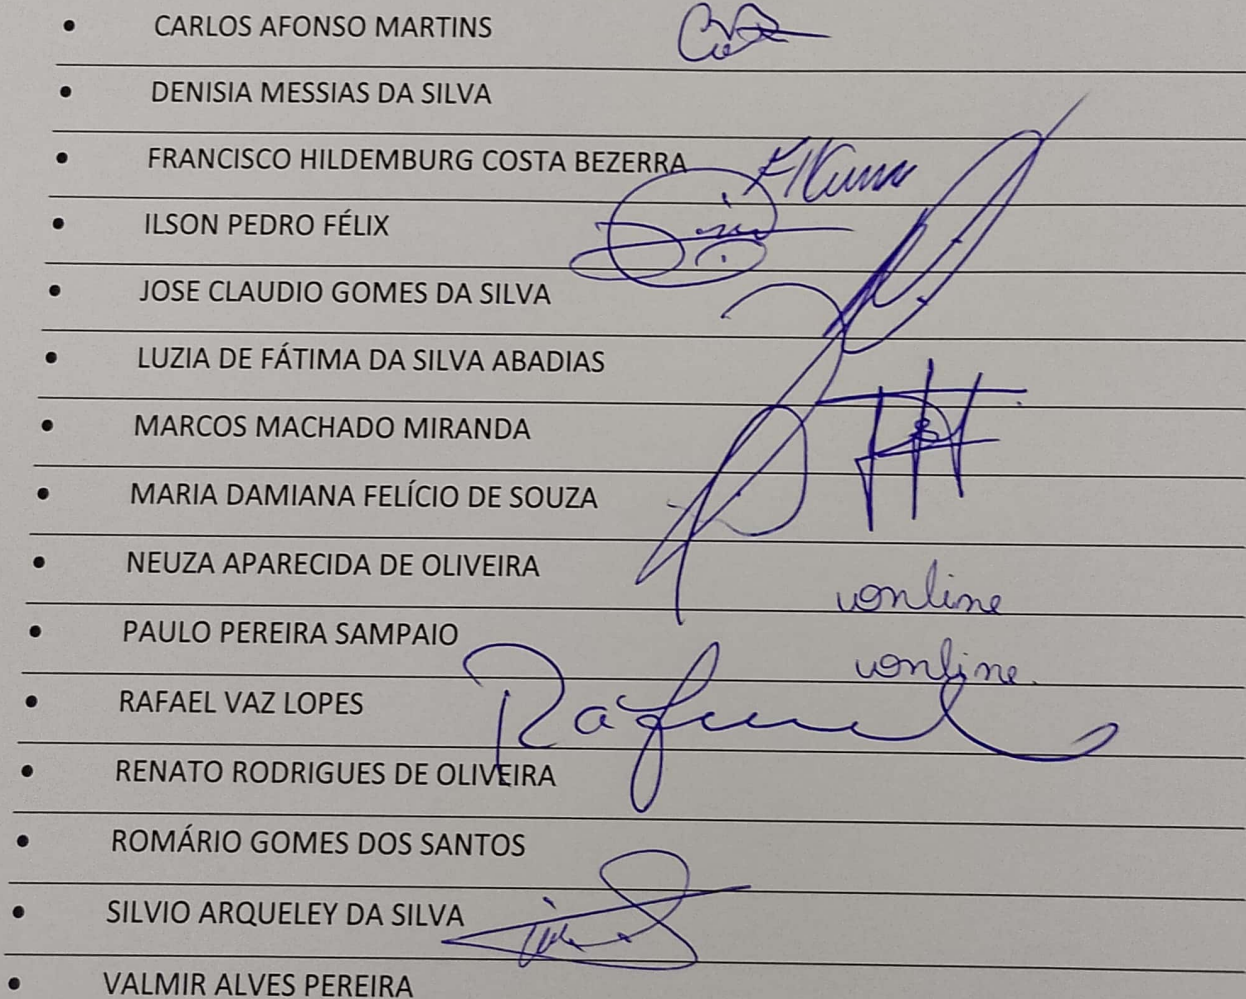 • CARLOS AFONSO MARTINS
• DENISIA MESSIAS DA SILVA
• FRANCISCO HILDEMBURG COSTA BEZERRA
• ILSON PEDRO FÉLIX
• JOSE CLAUDIO GOMES DA SILVA
• LUZIA DE FÁTIMA DA SILVA ABADIAS
• MARCOS MACHADO MIRANDA
• MARIA DAMIANA FELÍCIO DE SOUZA
• NEUZA APARECIDA DE OLIVEIRA online
• PAULO PEREIRA SAMPAIO online.
• RAFAEL VAZ LOPES Rafael
• RENATO RODRIGUES DE OLIVEIRA
• ROMÁRIO GOMES DOS SANTOS
• SILVIO ARQUELEY DA SILVA
• VALMIR ALVES PEREIRA